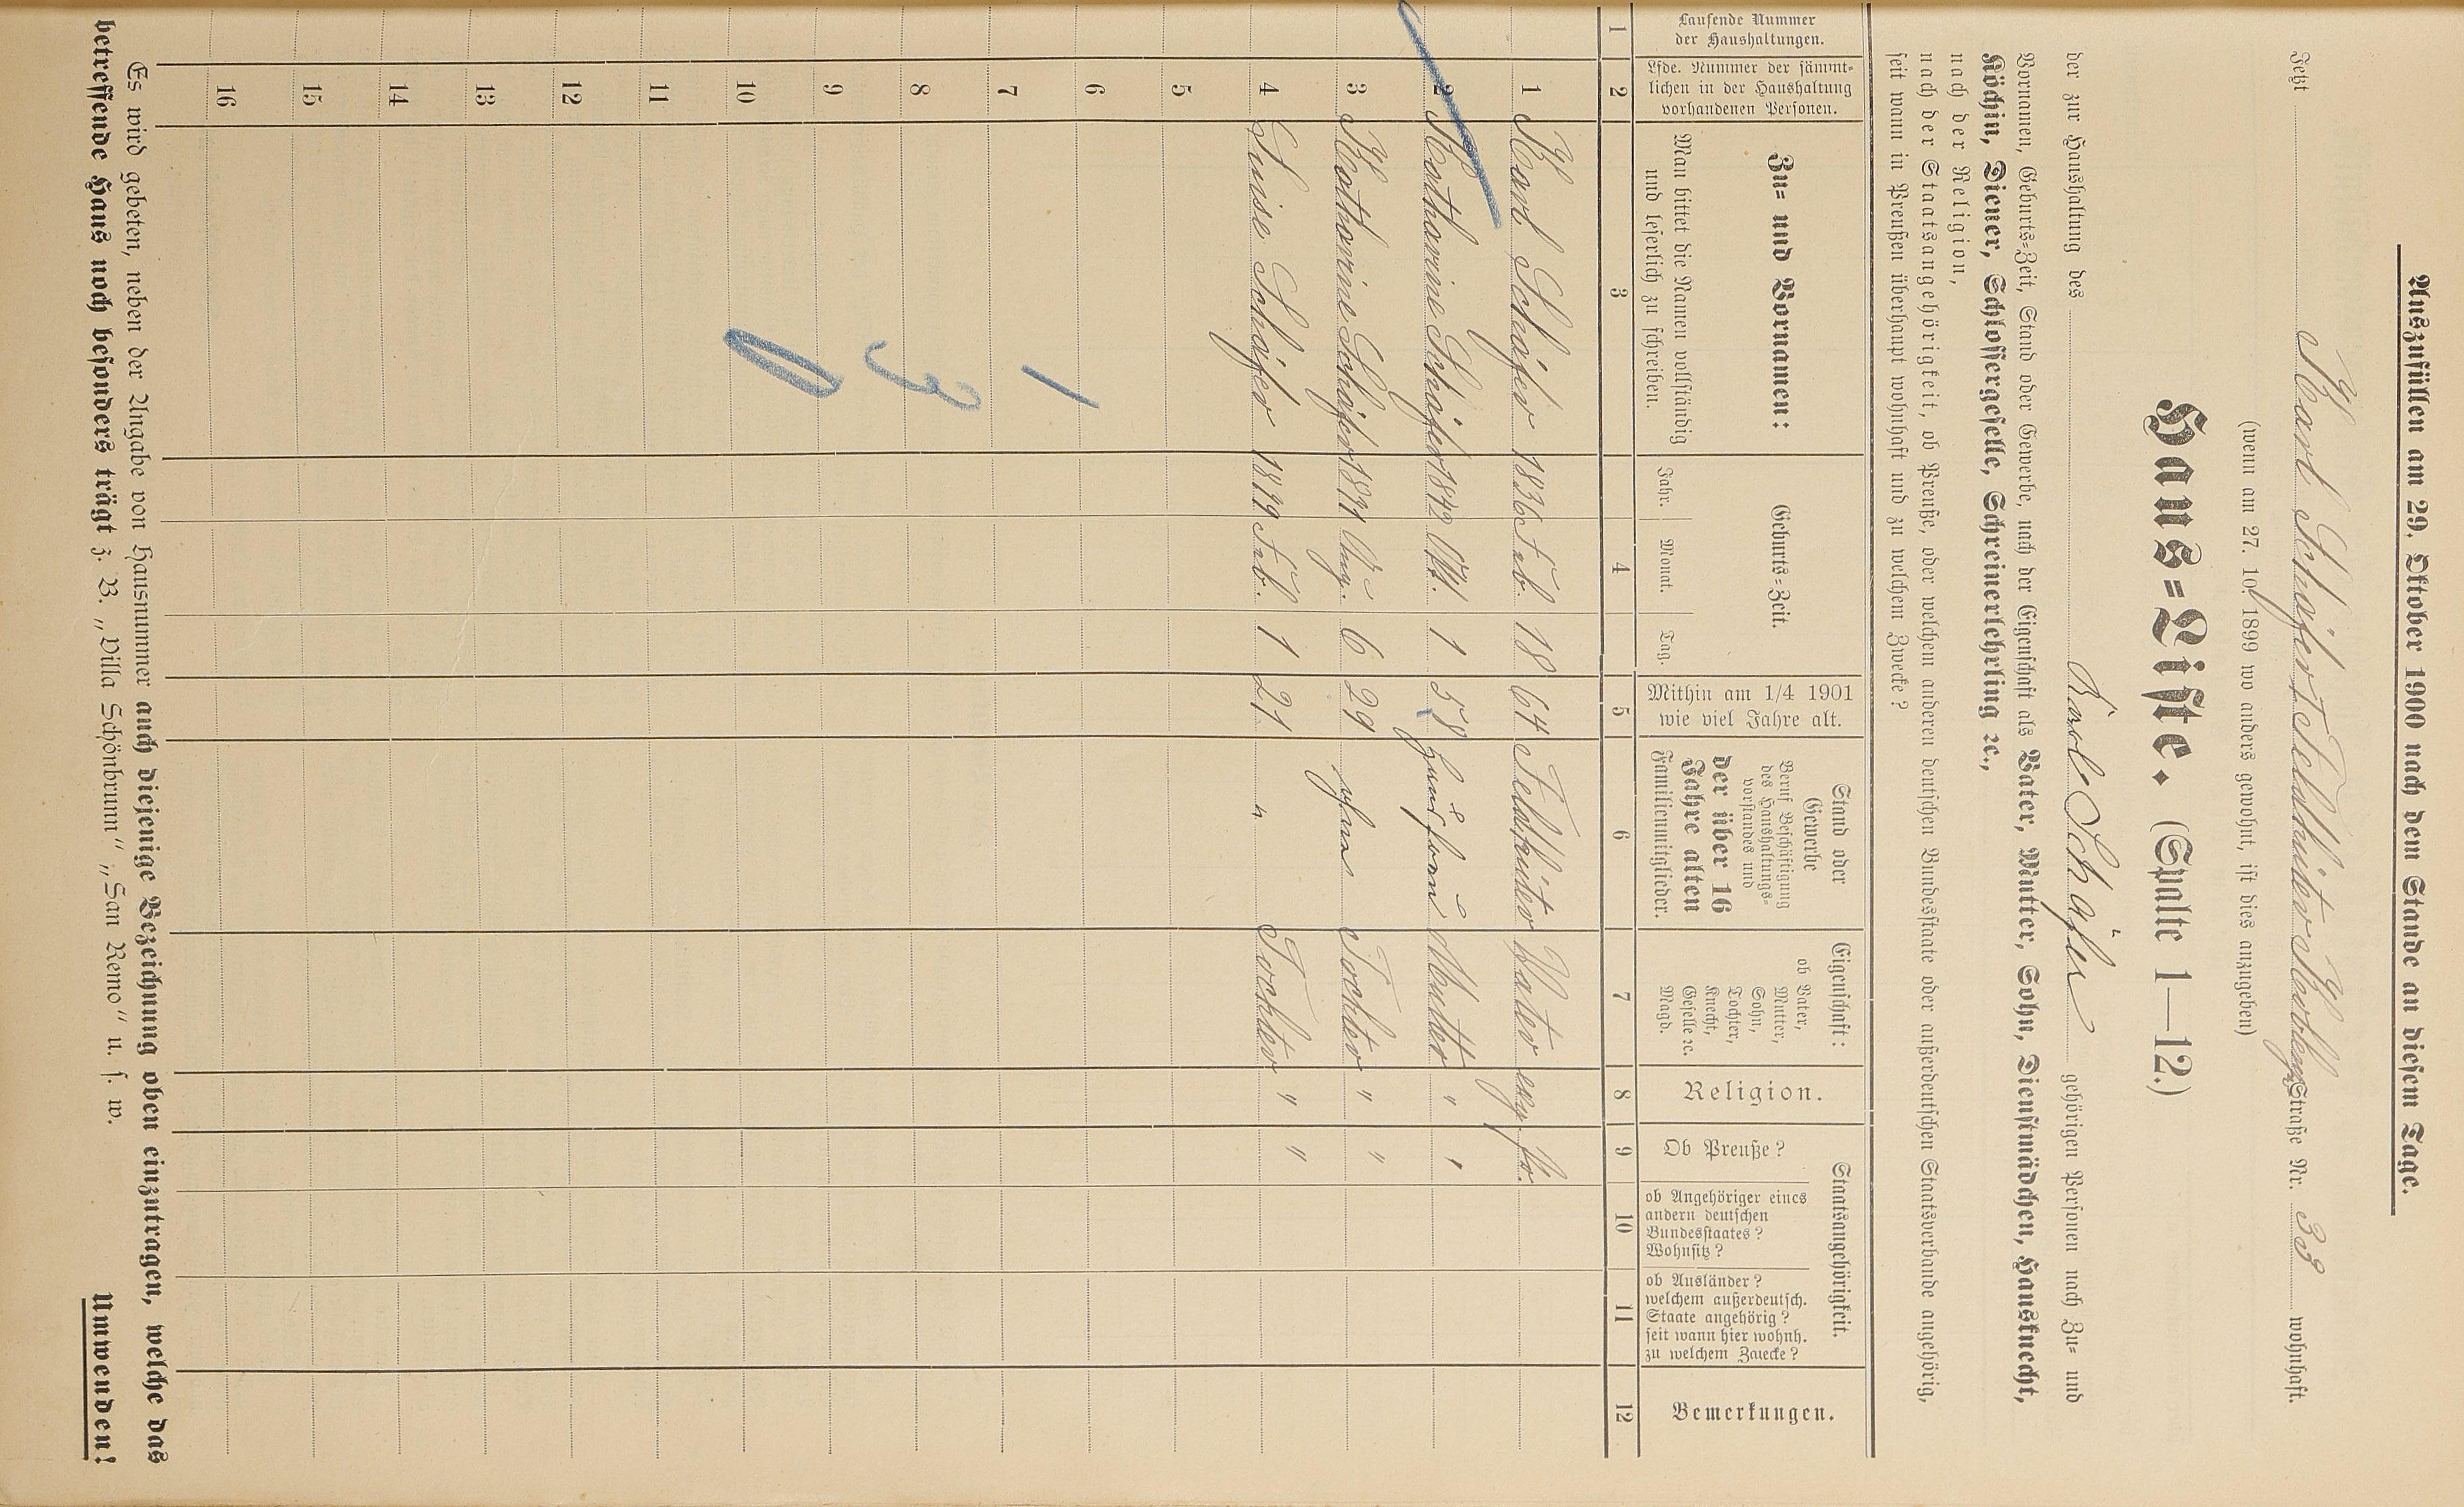 Auszufüllen am 29. Oktober 1900 nach dem Stande an diesem Tage.
Jetzt Karl Schäfer Feldhüter Koblenz Straße Nr. 33 wohnhaft.
(wenn am 27. 10. 1899 wo anders gewohnt, ist dies anzugeben)
Haus=Liste. (Spalte 1—12.)
der zur Haushaltung des Karl Schäfer gehörigen Personen nach Zu= und
Vornamen, Geburts=Zeit, Stand oder Gewerbe, nach der Eigenschaft als Vater, Mutter, Sohn, Dienstmädchen, Hausknecht,
Köchin, Diener, Schlossergeselle, Schreinerlehrling ꝛc.,
nach der Religion,
nach der Staatsangehörigkeit, ob Preuße, oder welchem anderen deutschen Bundesstaate oder außerdeutschen Staatsverbande angehörig,
seit wann in Preußen überhaupt wohnhaft und zu welchem Zwecke?
Laufende Nummer
der Haushaltungen.
Lfde. Nummer der sämmt=
lichen in der Haushaltung
vorhandenen Personen.
Zu= und Vornamen:
Man bittet die Namen vollständig
und leserlich zu schreiben.
Geburts=Zeit.
Jahr. Monat. Tag.
Mithin am 1/4 1901
wie viel Jahre alt.
Stand oder
Gewerbe
Beruf Beschäftigung
des Haushaltungs=
vorstandes und
der über 16
Jahre alten
Familienmitglieder.
Eigenschaft:
ob Vater,
Mutter,
Sohn,
Tochter,
Knecht,
Geselle ꝛc.
Magd.
Religion.
Staatsangehörigkeit.
Ob Preuße?
ob Angehöriger eines
andern deutschen
Bundesstaates?
Wohnsitz?
ob Ausländer?
welchem außerdeutsch.
Staate angehörig?
seit wann hier wohnh.
zu welchem Zwecke?
Bemerkungen.
1 2 3 4 5 6 7 8 9 10 11 12
1 Karl Schäfer 1836 Feb. 18 64 Feldhüter Vater evg. Pr.
2 Katharine Schäfer 1842 Okt. 1 58 Hausfrau Mutter " "
3 Katharine Schäfer 1871 Aug. 6 29 ohne Tochter " "
4 Luise Schäfer 1879 Feb. 1 21 " Tochter " "
5
6
7
8
9
10
11
12
13
14
15
16
1
3
0
Es wird gebeten, neben der Angabe von Hausnummer auch diejenige Bezeichnung oben einzutragen, welche das
betreffende Haus noch besonders trägt z. B. „Villa Schönbrunn" „San Remo" u. s. w.
Umwenden!